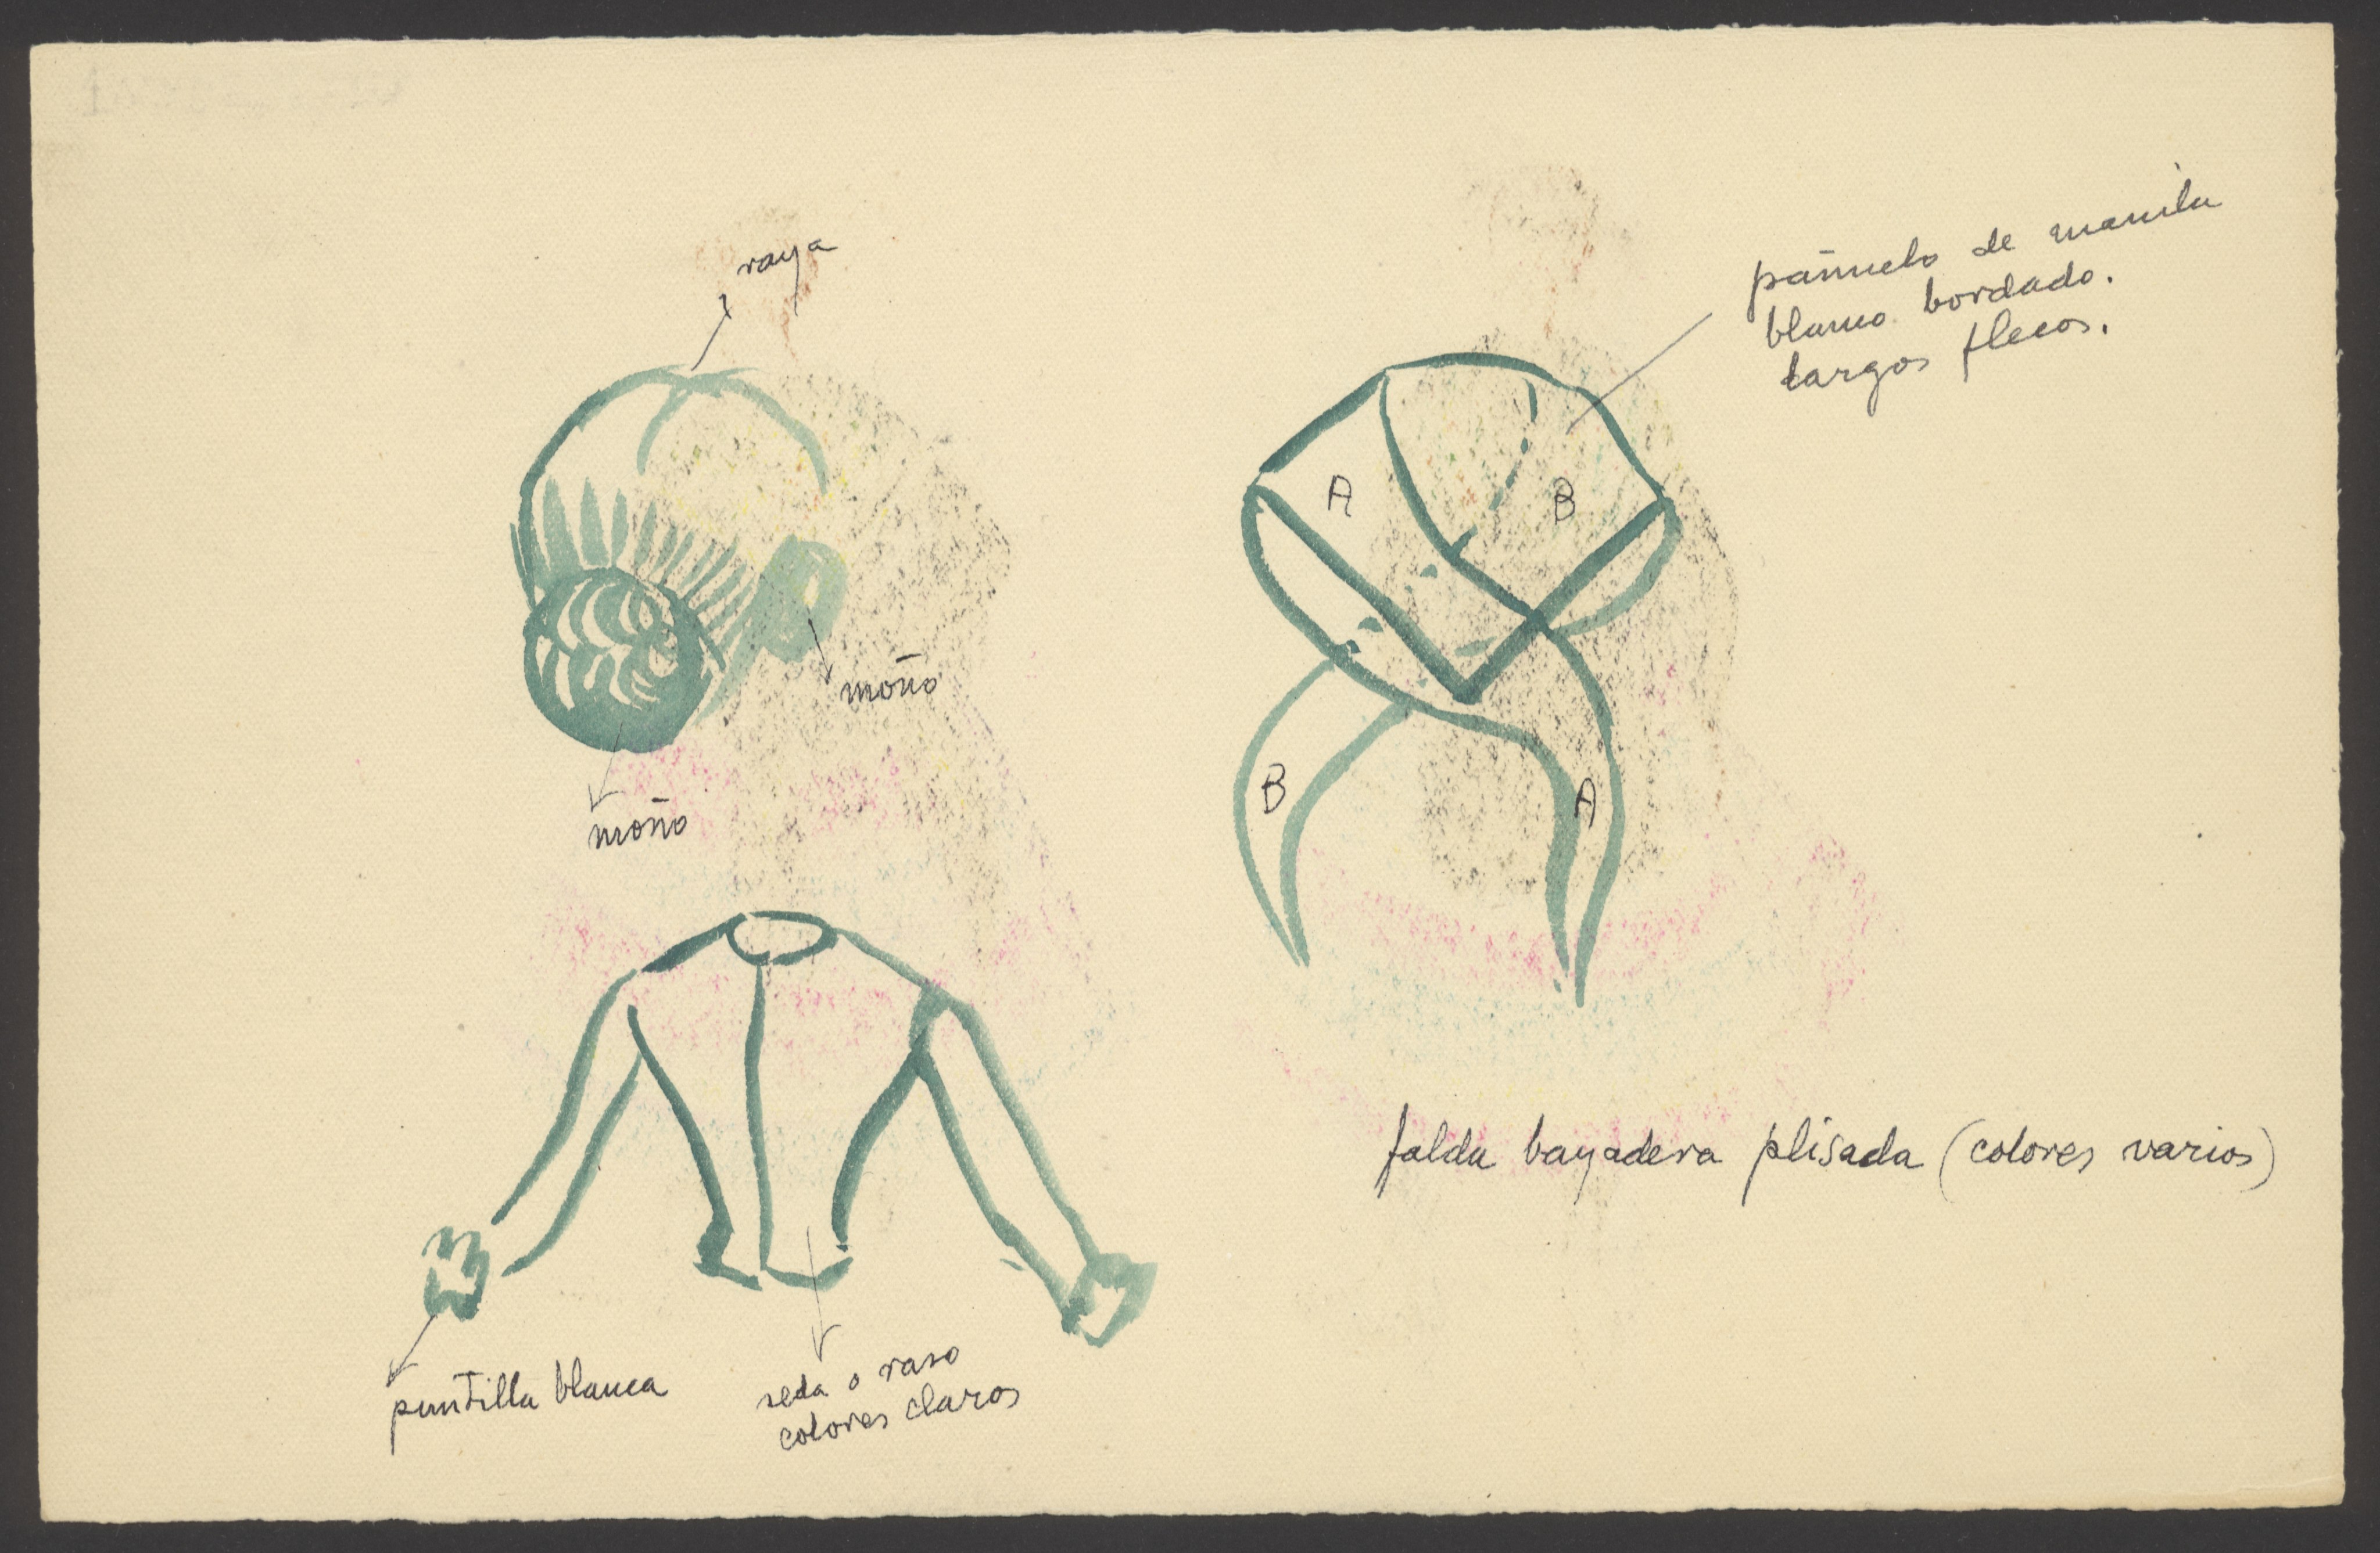 raya
moño
moño
pañuelo de manila
blanco bordado.
largos flecos.
A
B
B
A
falda bayadera plisada (colores varios)
puntilla blanca
seda o raso
colores claros